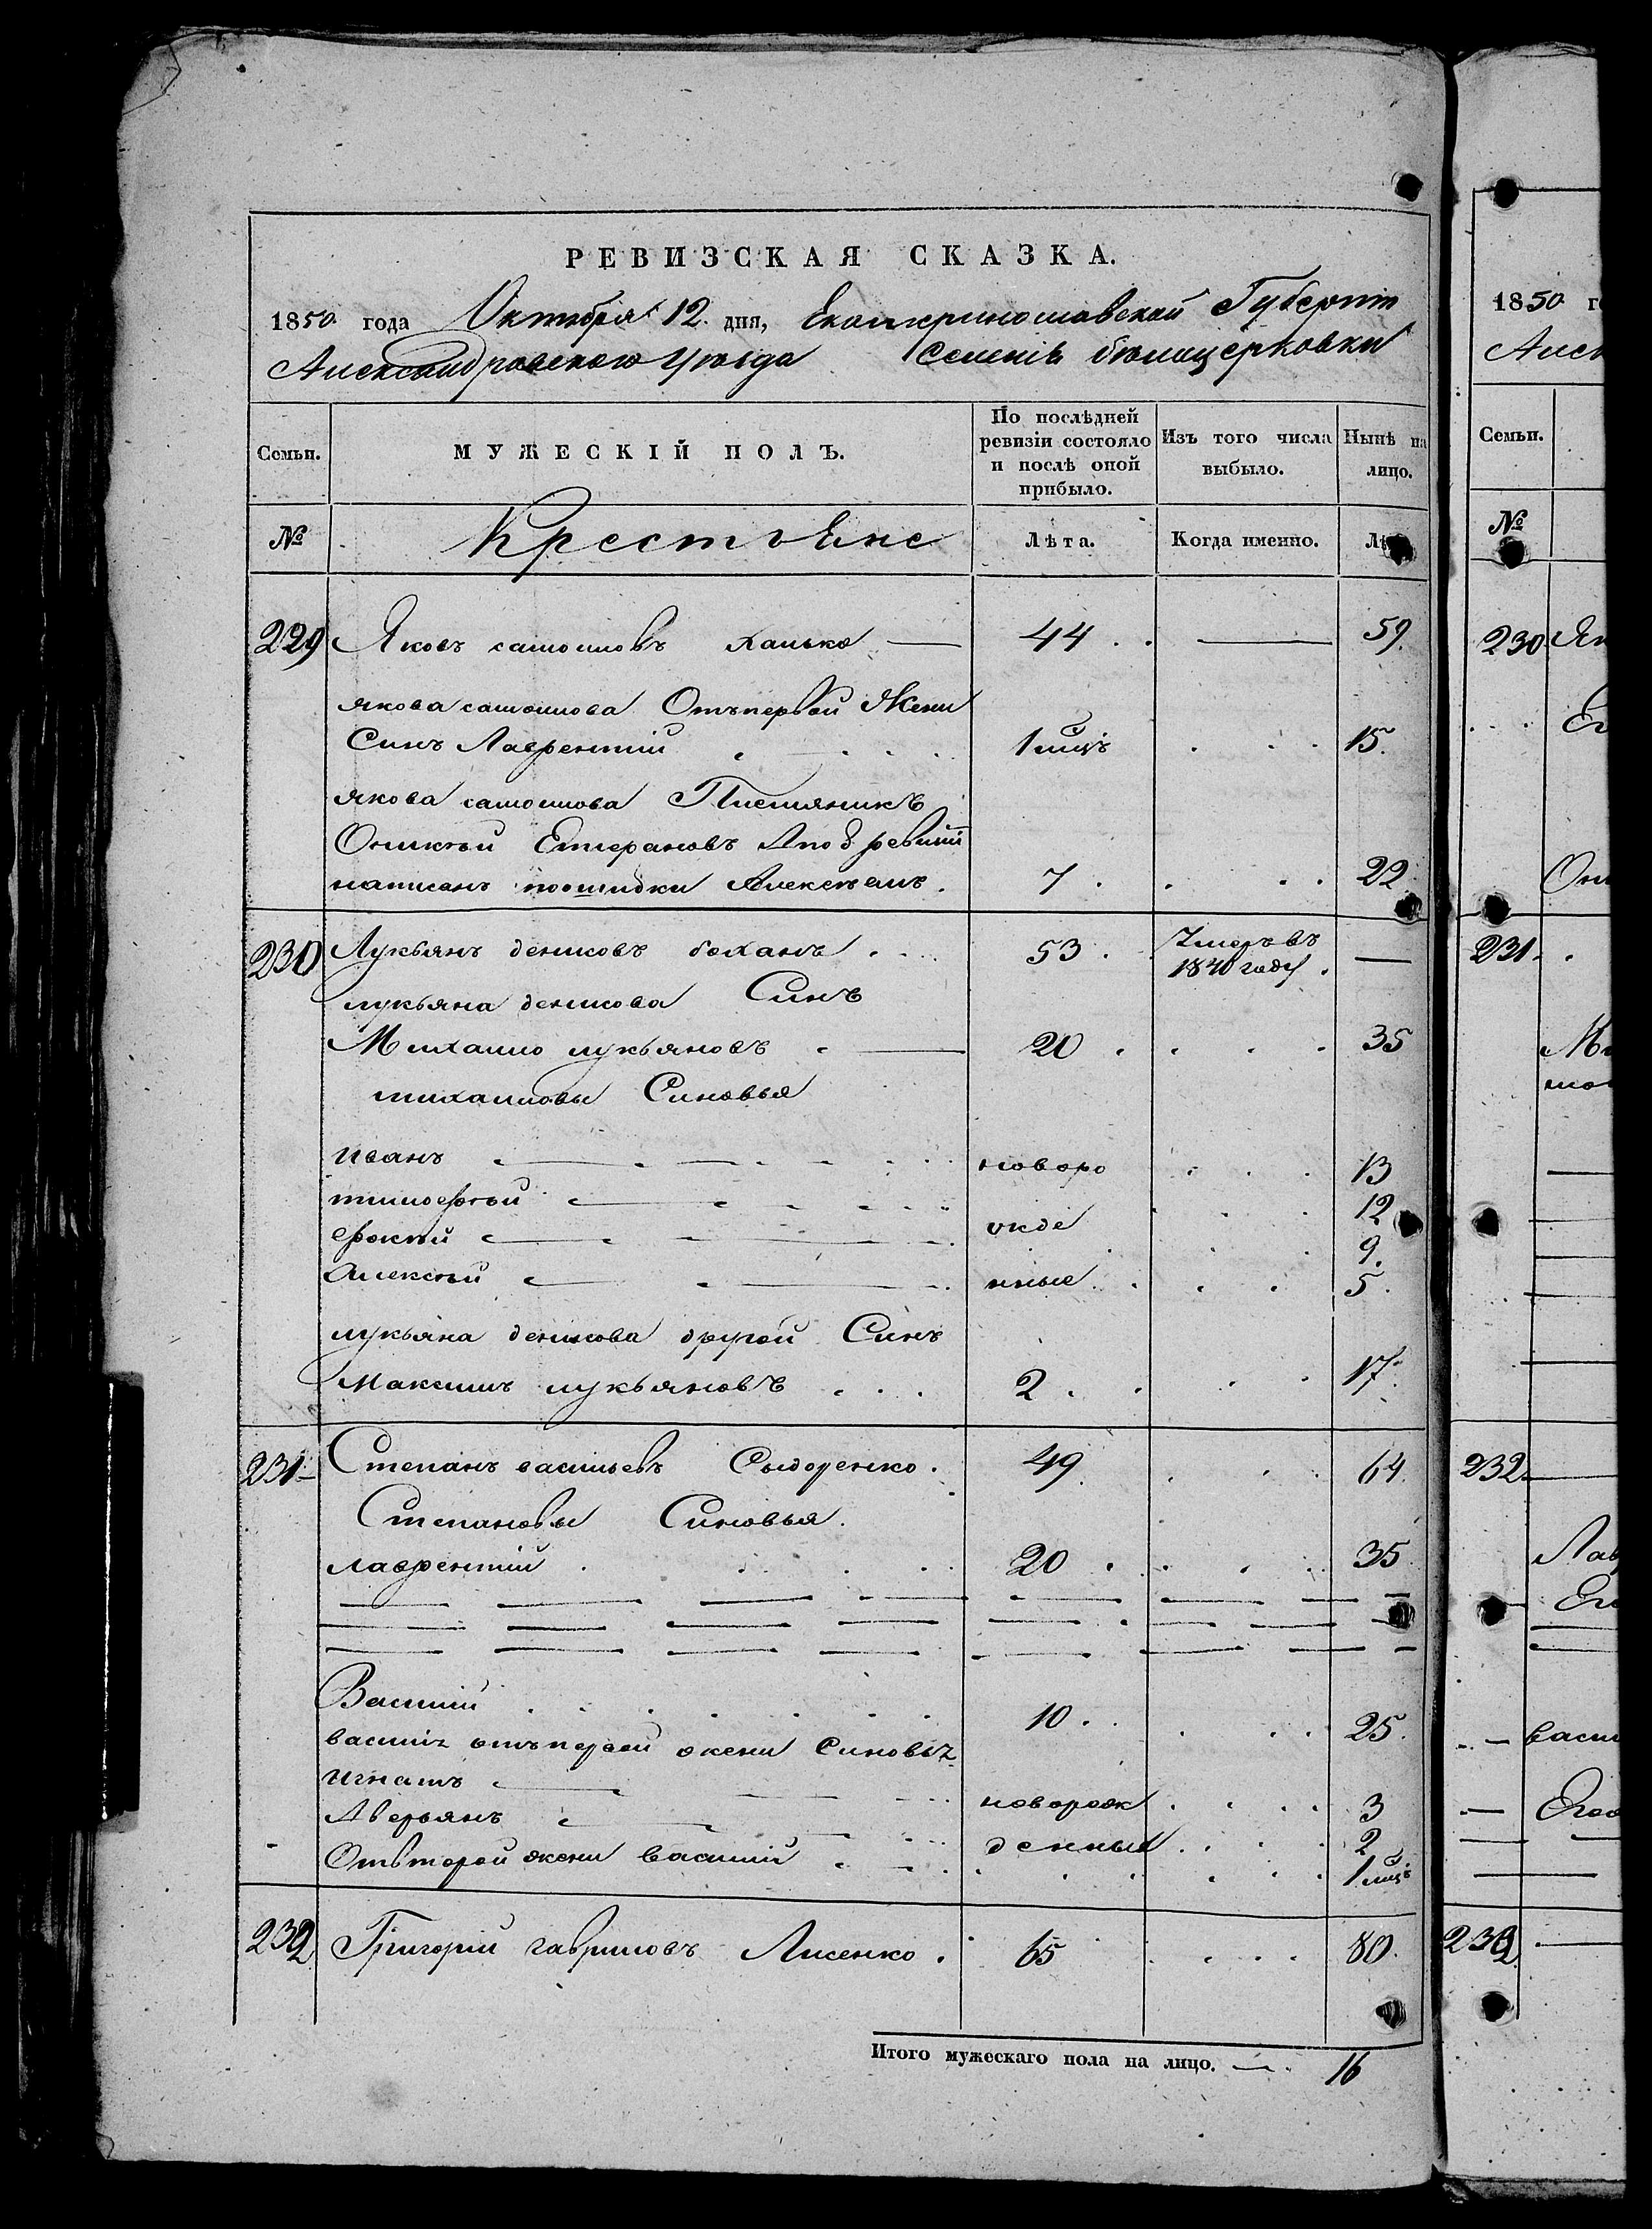 РЕВИЗСКАЯ СКАЗКА.
1850 года Октября 12 дня, Екатеринославской Губерніи
Александровского уѣзда Селенія бѣлицерковки
Семьи.
МУЖЕСКІЙ ПОЛЪ.
По послѣдней ревизіи состояло и послѣ оной прибыло.
Изъ того числа выбыло.
Нынѣ на лицо.
№ Крестьяне Лѣта. Когда именно.
229 Яковъ самойловъ 44 59
якова самойлова Отъпервой Жени
Синъ Лаврентій 1 мцъ 15
якова самойлова Племяникъ
Оникѣй Апо 8 ревизіи
написанъ поошибки Алексѣемъ. 7 22
230 Лукьянъ денисовъ боханъ 53 Умеръ въ 1840 году —
лукьяна денисова Синъ
Михайло лукьяновъ 20 35
михайловы Синовья
иванъ новоро 13
тимоѳѣй жде 12
9
Алексѣй нные 5
лукьяна денисова другой Синъ
Максимъ лукьяновъ 2 17
231 Степанъ васильевъ Сыдоренко 49 64
Степановы Синовья
лаврентій 20 35
Василій 10 25
василія отъпервой жени Синовья
игнатъ новорож 3
Аверьянъ денныя 2
Отвторой жени василій 1 мцъ
232 Григорій гавриловъ Лисенко 65 80
Итого мужескаго пола на лицо. 16
1850
Семьи.
№
230
231
232
Лав
васи
232